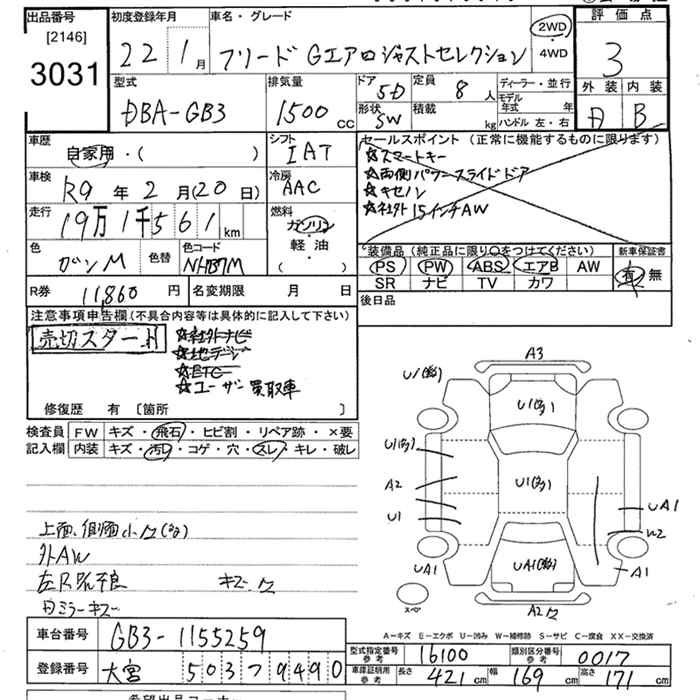 出品番号 初度登録年月 車名・グレード 評価点
[2146]
3031
22年1月 フリード Gエアロジャストセレクション 2WD・4WD 3
外装 内装
B
型式 排気量 ドア 定員 ディーラー・並行
DBA-GB3 1500cc 5D 8人 モデル年式 年
形状 積載 ハンドル 左・右
SW kg
車歴 シフト セールスポイント (正常に機能するものに限ります)
自家用・( ) IAT
☆スマートキー
☆両側パワースライドドア
☆キセノン
☆社外15インチAW
車検 冷房
R9年2月(20日) AAC
走行 燃料
19万1千561km ガソリン・軽油( )
色 色替 色コード
ガンM NH737M
装備品 (純正品に限り○をつけてください) 新車保証書
PS PW ABS エアB AW 有・無
SR ナビ TV カワ
R券 11,860円 名変期限 月 日 後日品
注意事項申告欄 (不具合内容等は具体的に記入して下さい)
売切スタート
☆社外ナビ
☆地デジ
☆ETC
☆ユーザー買取車
修復歴 有 [箇所 ]
検査員記入欄
FW キズ・飛石・ヒビ割・リペア跡・×要
内装 キズ・汚れ・コゲ・穴・スレ・キレ・破レ
外AW
A3
U1
A2
U1
UA1
W2
A1
UA1
A2
スペア
A-キズ E-エクボ U-凹み W-補修跡 S-サビ C-腐食 XX-交換済
車台番号 GB3-1155259
型式指定番号 参考 16100 類別区分番号 参考 0017
登録番号 大宮 503 7 9490
車庫証明用 参考 長さ 421cm 幅 169cm 高さ 171cm